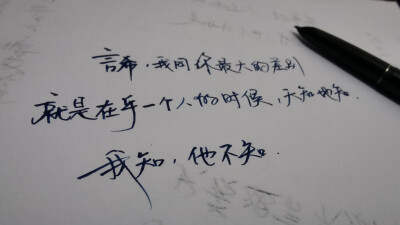 言希，我同你最大的差别
就是在乎一个人的时候，天知他知
我知，他不知